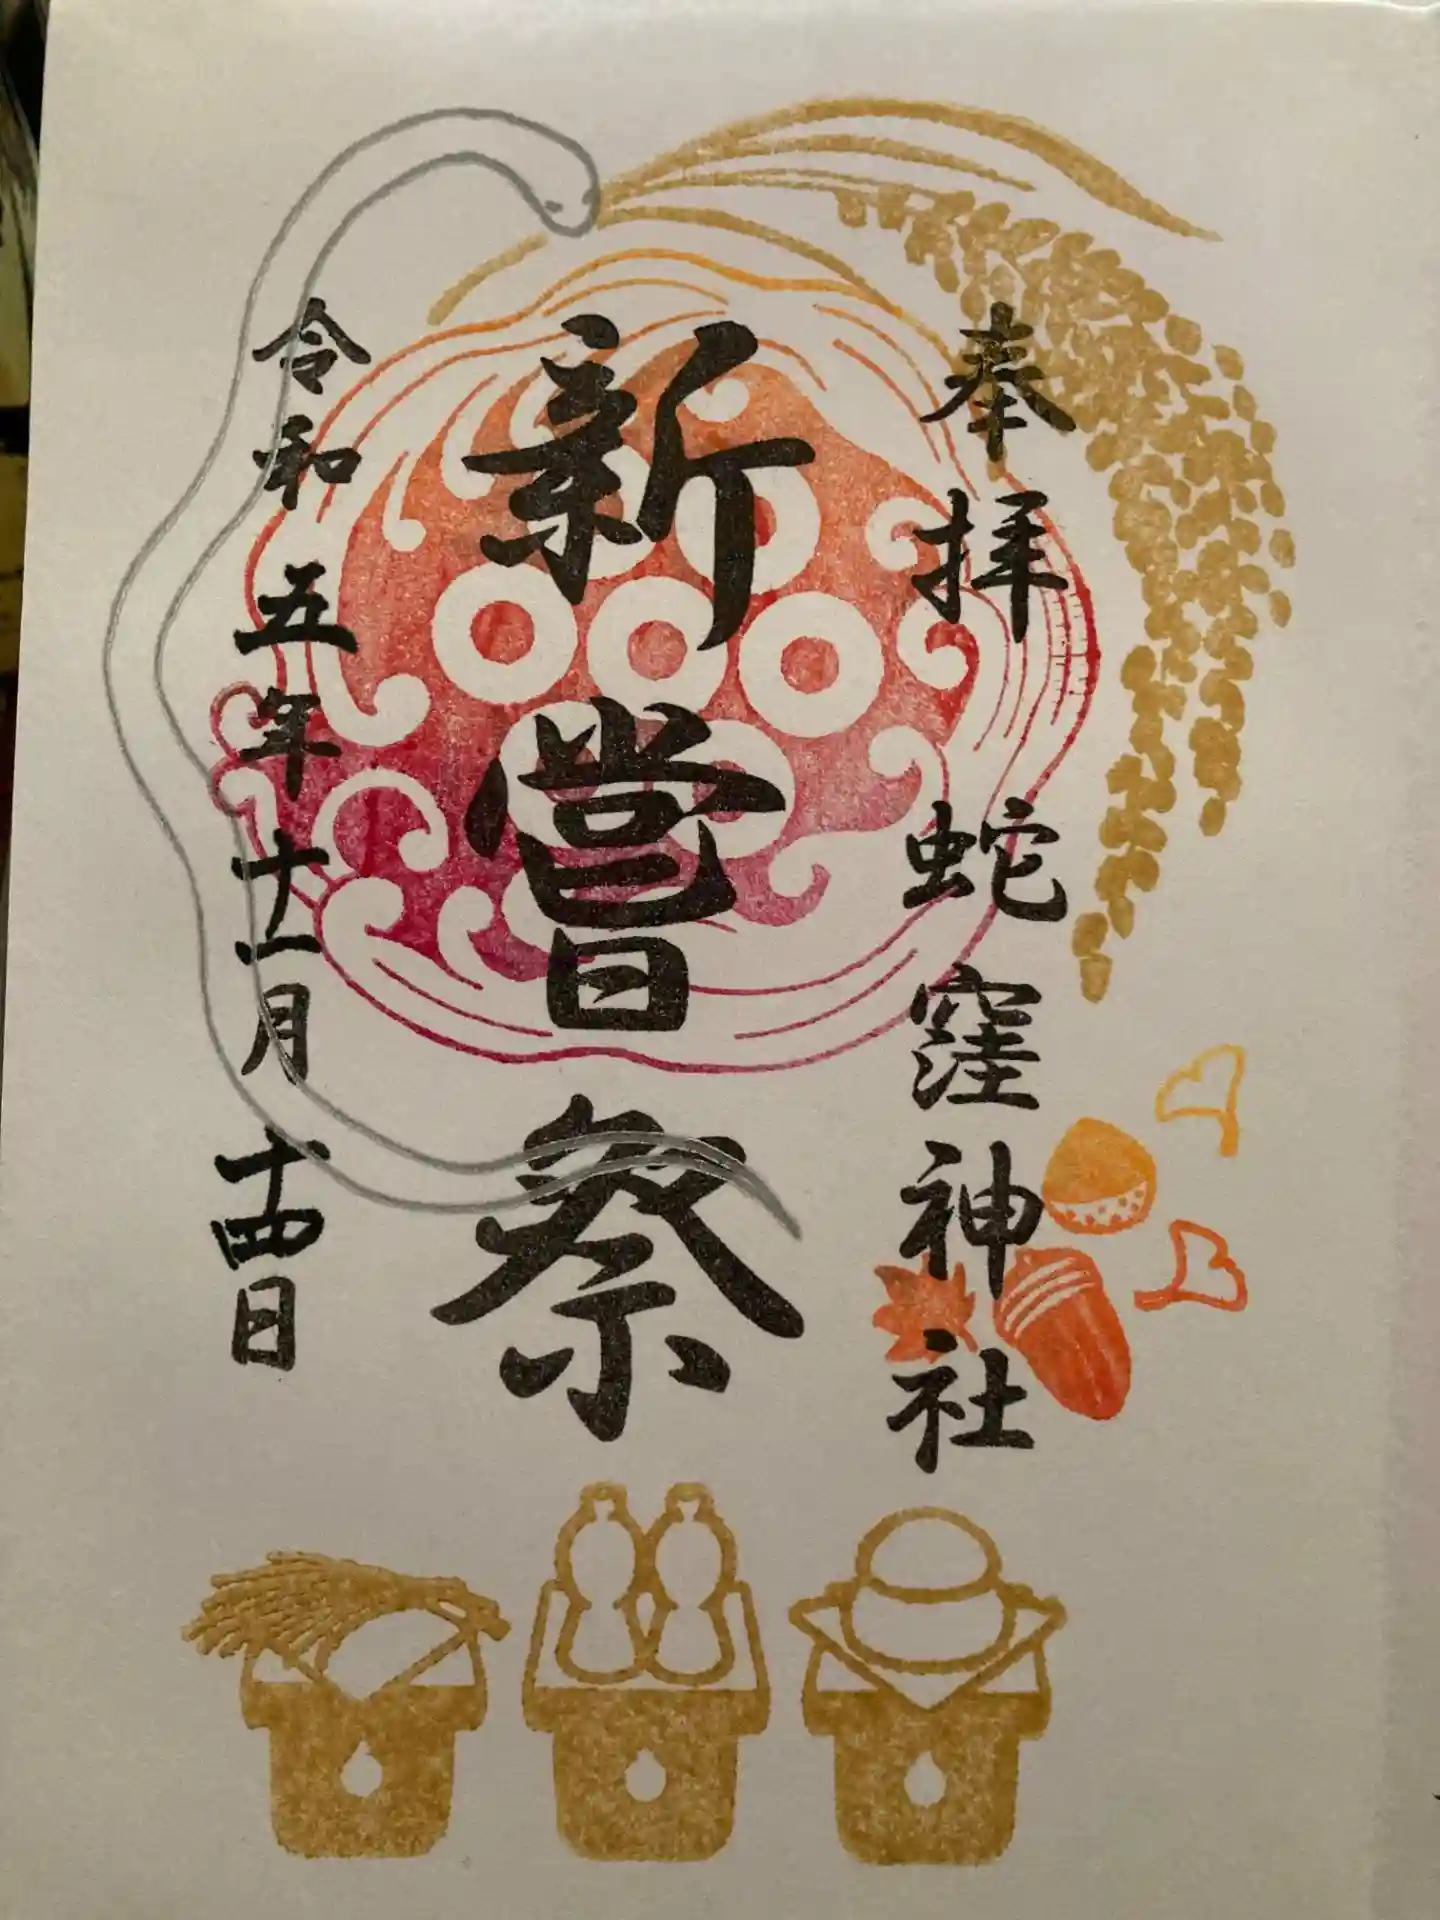 奉拝 蛇窪神社
新嘗祭
令和五年十一月十四日